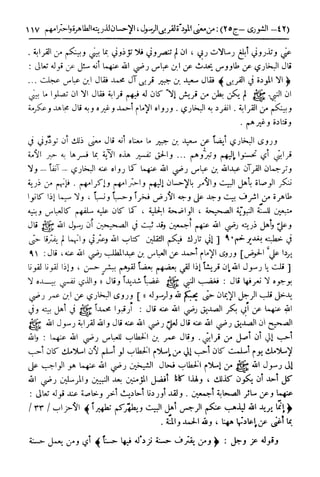 (٤٢ – الشورى – ج٢٥) : من معنى المودة لقربى الرسول ، الإحسان لذريته الطاهرة واحترامهم ١١٧
عني وتذروني أبلغ رسالات ربي ، ان لم تنصروني فلا تؤذوني بما بيني وبينكم من القرابة .
قال البخاري عن طاووس يحدث عن ابن عباس رضي الله عنهما أنه سئل عن قوله تعالى :
﴿ الا المودة في القربى ﴾ فقال سعيد بن جبير قربى آل محمد فقال ابن عباس عجلت ...
ان النبي ﷺ لم يكن بطن من قريش إلا كان له فيهم قرابة فقال الا ان تصلوا ما بيني
وبينكم من القرابة . انفرد به البخاري . ورواه الإمام أحمد وغيره وبه قال مجاهد وعكرمة
وقتادة وغيرهم .
وروى البخاري أيضاً عن سعيد بن جبير ما معناه أنه قال معنى ذلك أن تودوني في
قرابتي أي تحسنوا إليهم وتبروهم ... والحق تفسير هذه الآية بما فسرها به حبر الأمة
وترجمان القرآن عبدالله بن عباس رضي الله عنهما كما رواه عنه البخاري – آنفاً – ولا
ننكر الوصاة بأهل البيت والأمر بالإحسان إليهم واحترامهم وإكرامهم . فإنهم من ذرية
طاهرة من أشرف بيت وجد على وجه الأرض فخراً وحسباً ونسباً ، ولا سيما إذا كانوا
متبعين للسنة النبوية الصحيحة ، الواضحة الجلية ، كما كان عليه سلفهم كالعباس وبنيه
وعليّ وأهل ذريته رضي الله عنهم أجمعين وقد ثبت في الصحيحين أن رسول الله قال
في خطبته بغدير خم ٩٠ [ إني تارك فيكم الثقلين كتاب الله وعترتي وانهما لم يفترقا حتى
يردا عليّ الحوض ] وروى الإمام أحمد عن العباس بن عبدالمطلب رضي الله عنه ، قال : ٩١
[ قلت يا رسول الله إن قريشاً إذا لقي بعضهم بعضاً لقوهم ببشر حسن ، وإذا لقونا لقونا
بوجوه لا نعرفها قال : فغضب النبي ﷺ غضباً شديداً وقال ، والذي نفسي بيده لا
يدخل قلب الرجل الإيمان حتى يحبكم لله ولرسوله ] وروى البخاري عن ابن عمر رضي
الله عنهما عن أبي بكر الصديق رضي الله عنه قال : أرقبوا محمداً ﷺ في أهل بيته وفي
الصحيح ان الصديق رضي الله عنه قال لعلي رضي الله عنه قال والله لقرابة رسول الله ﷺ
أحب إلي أن أصل من قرابتي . وقال عمر بن الخطاب للعباس رضي الله عنهما : والله
لإسلامك يوم أسلمت كان أحب إلي من إسلام الخطاب لو أسلم لأن اسلامك كان أحب
إلى رسول الله ﷺ من إسلام الخطاب فحال الشيخين رضي الله عنهما هو الواجب على
كل أحد أن يكون كذلك ، ولهذا كانا أفضل المؤمنين بعد النبيين والمرسلين رضي الله
عنهما وعن سائر الصحابة أجمعين . ولقد أوردنا أحاديث أخر وخاصة عند قوله تعالى :
﴿ إنما يريد الله ليذهب عنكم الرجس أهل البيت ويطهركم تطهيراً ﴾ الأحزاب / ٣٣ /
بما أغنى عن إعادتها ههنا ، ولله الحمد والمنة .
وقوله عز وجل : ﴿ ومن يقترف حسنة نزد له فيها حسناً ﴾ أي ومن يعمل حسنة